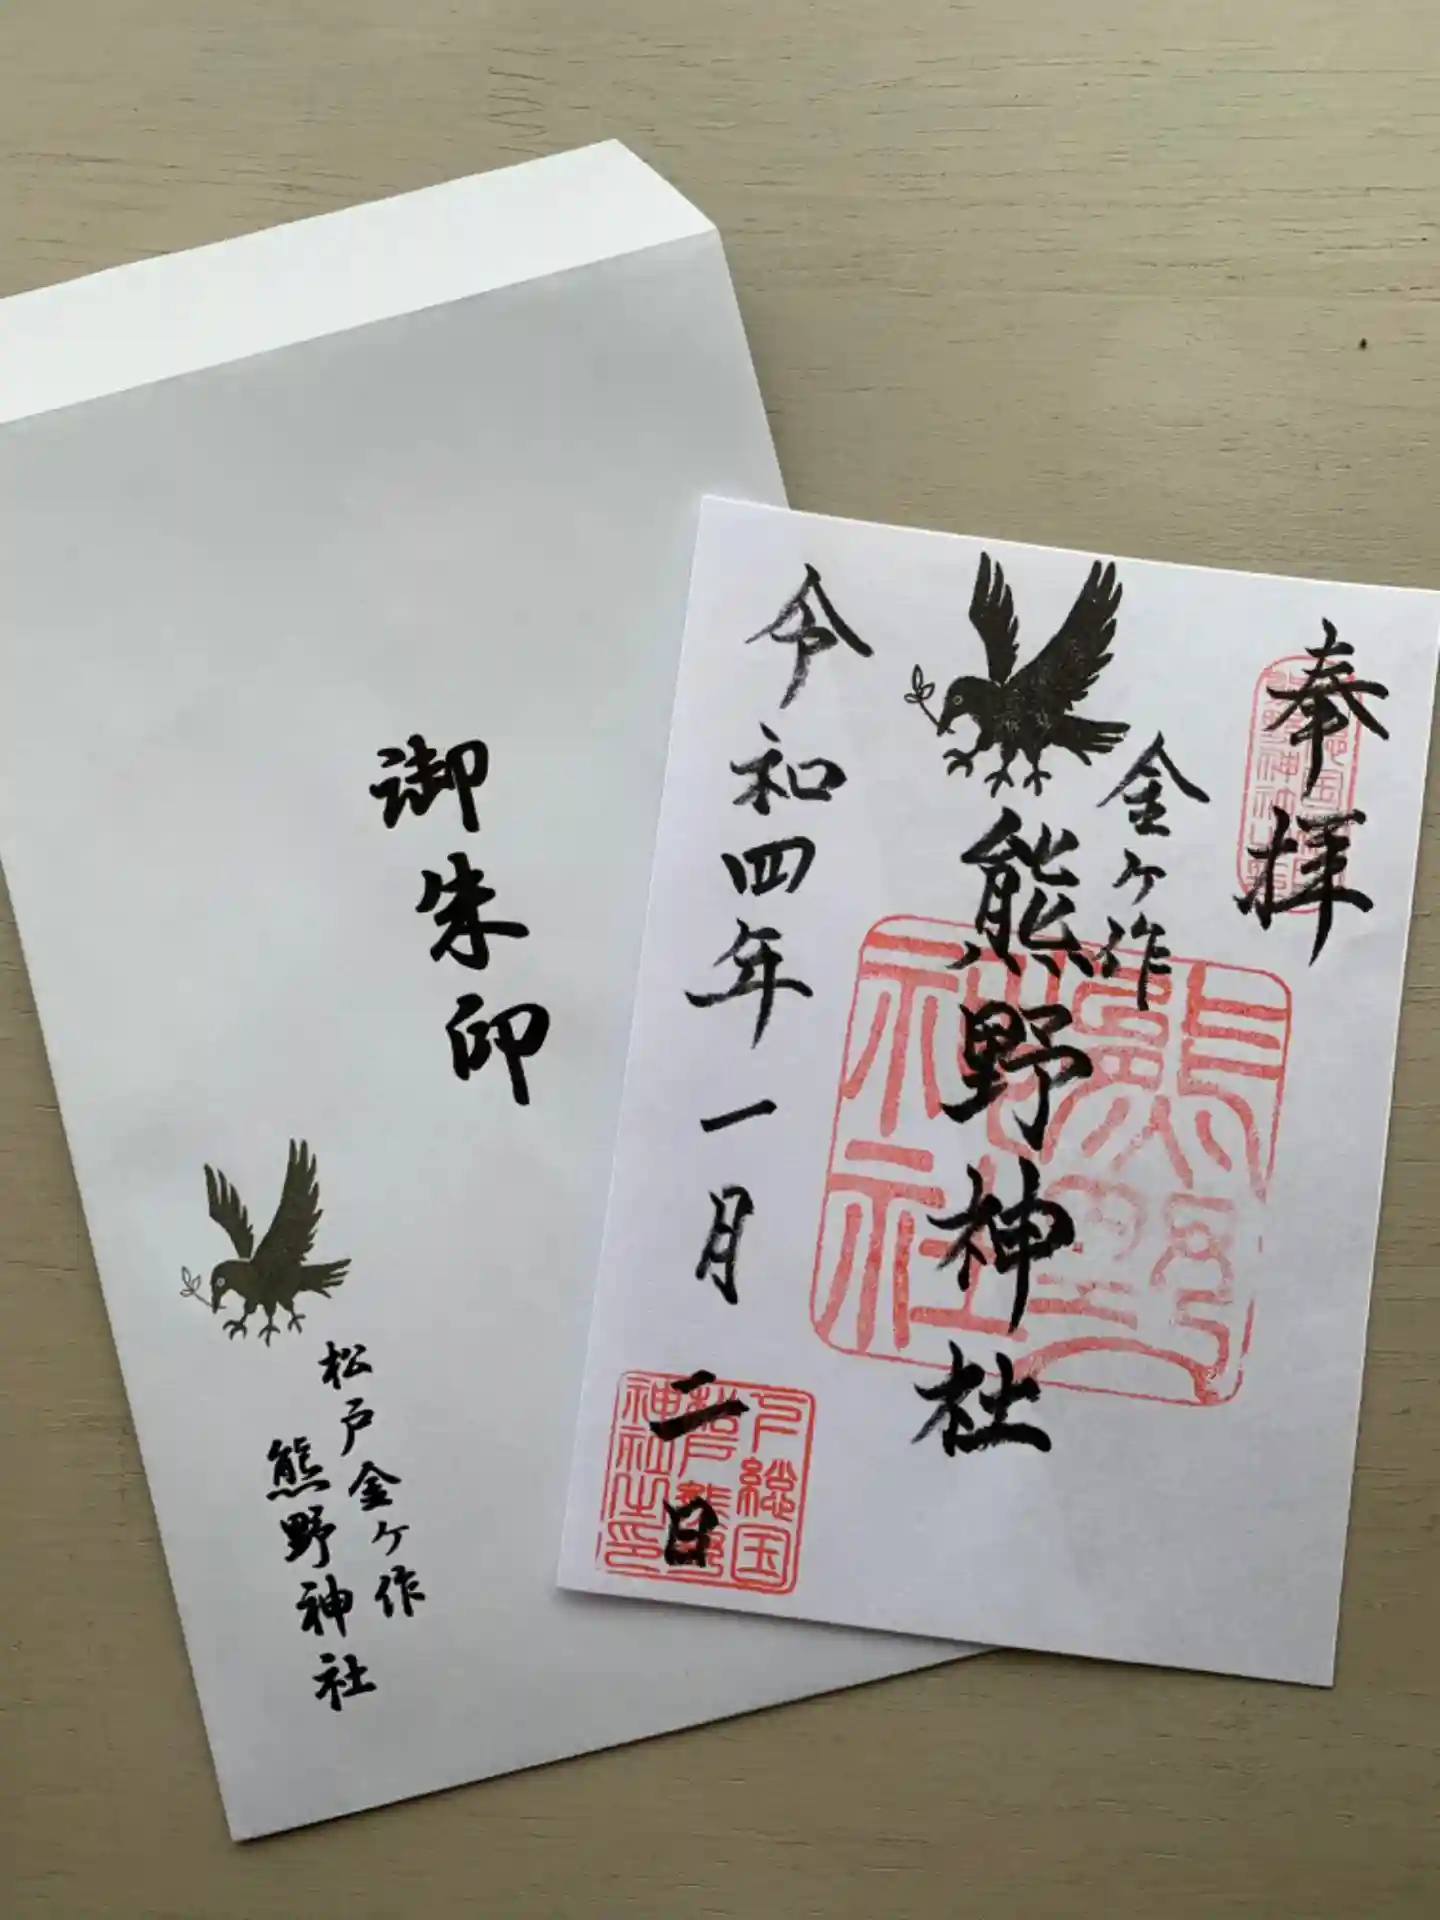 御朱印
松戸金ケ作
熊野神社
奉拝
金ケ作
熊野神社
令和四年一月二日
熊野神社
下総国
松戸熊野
神社之印